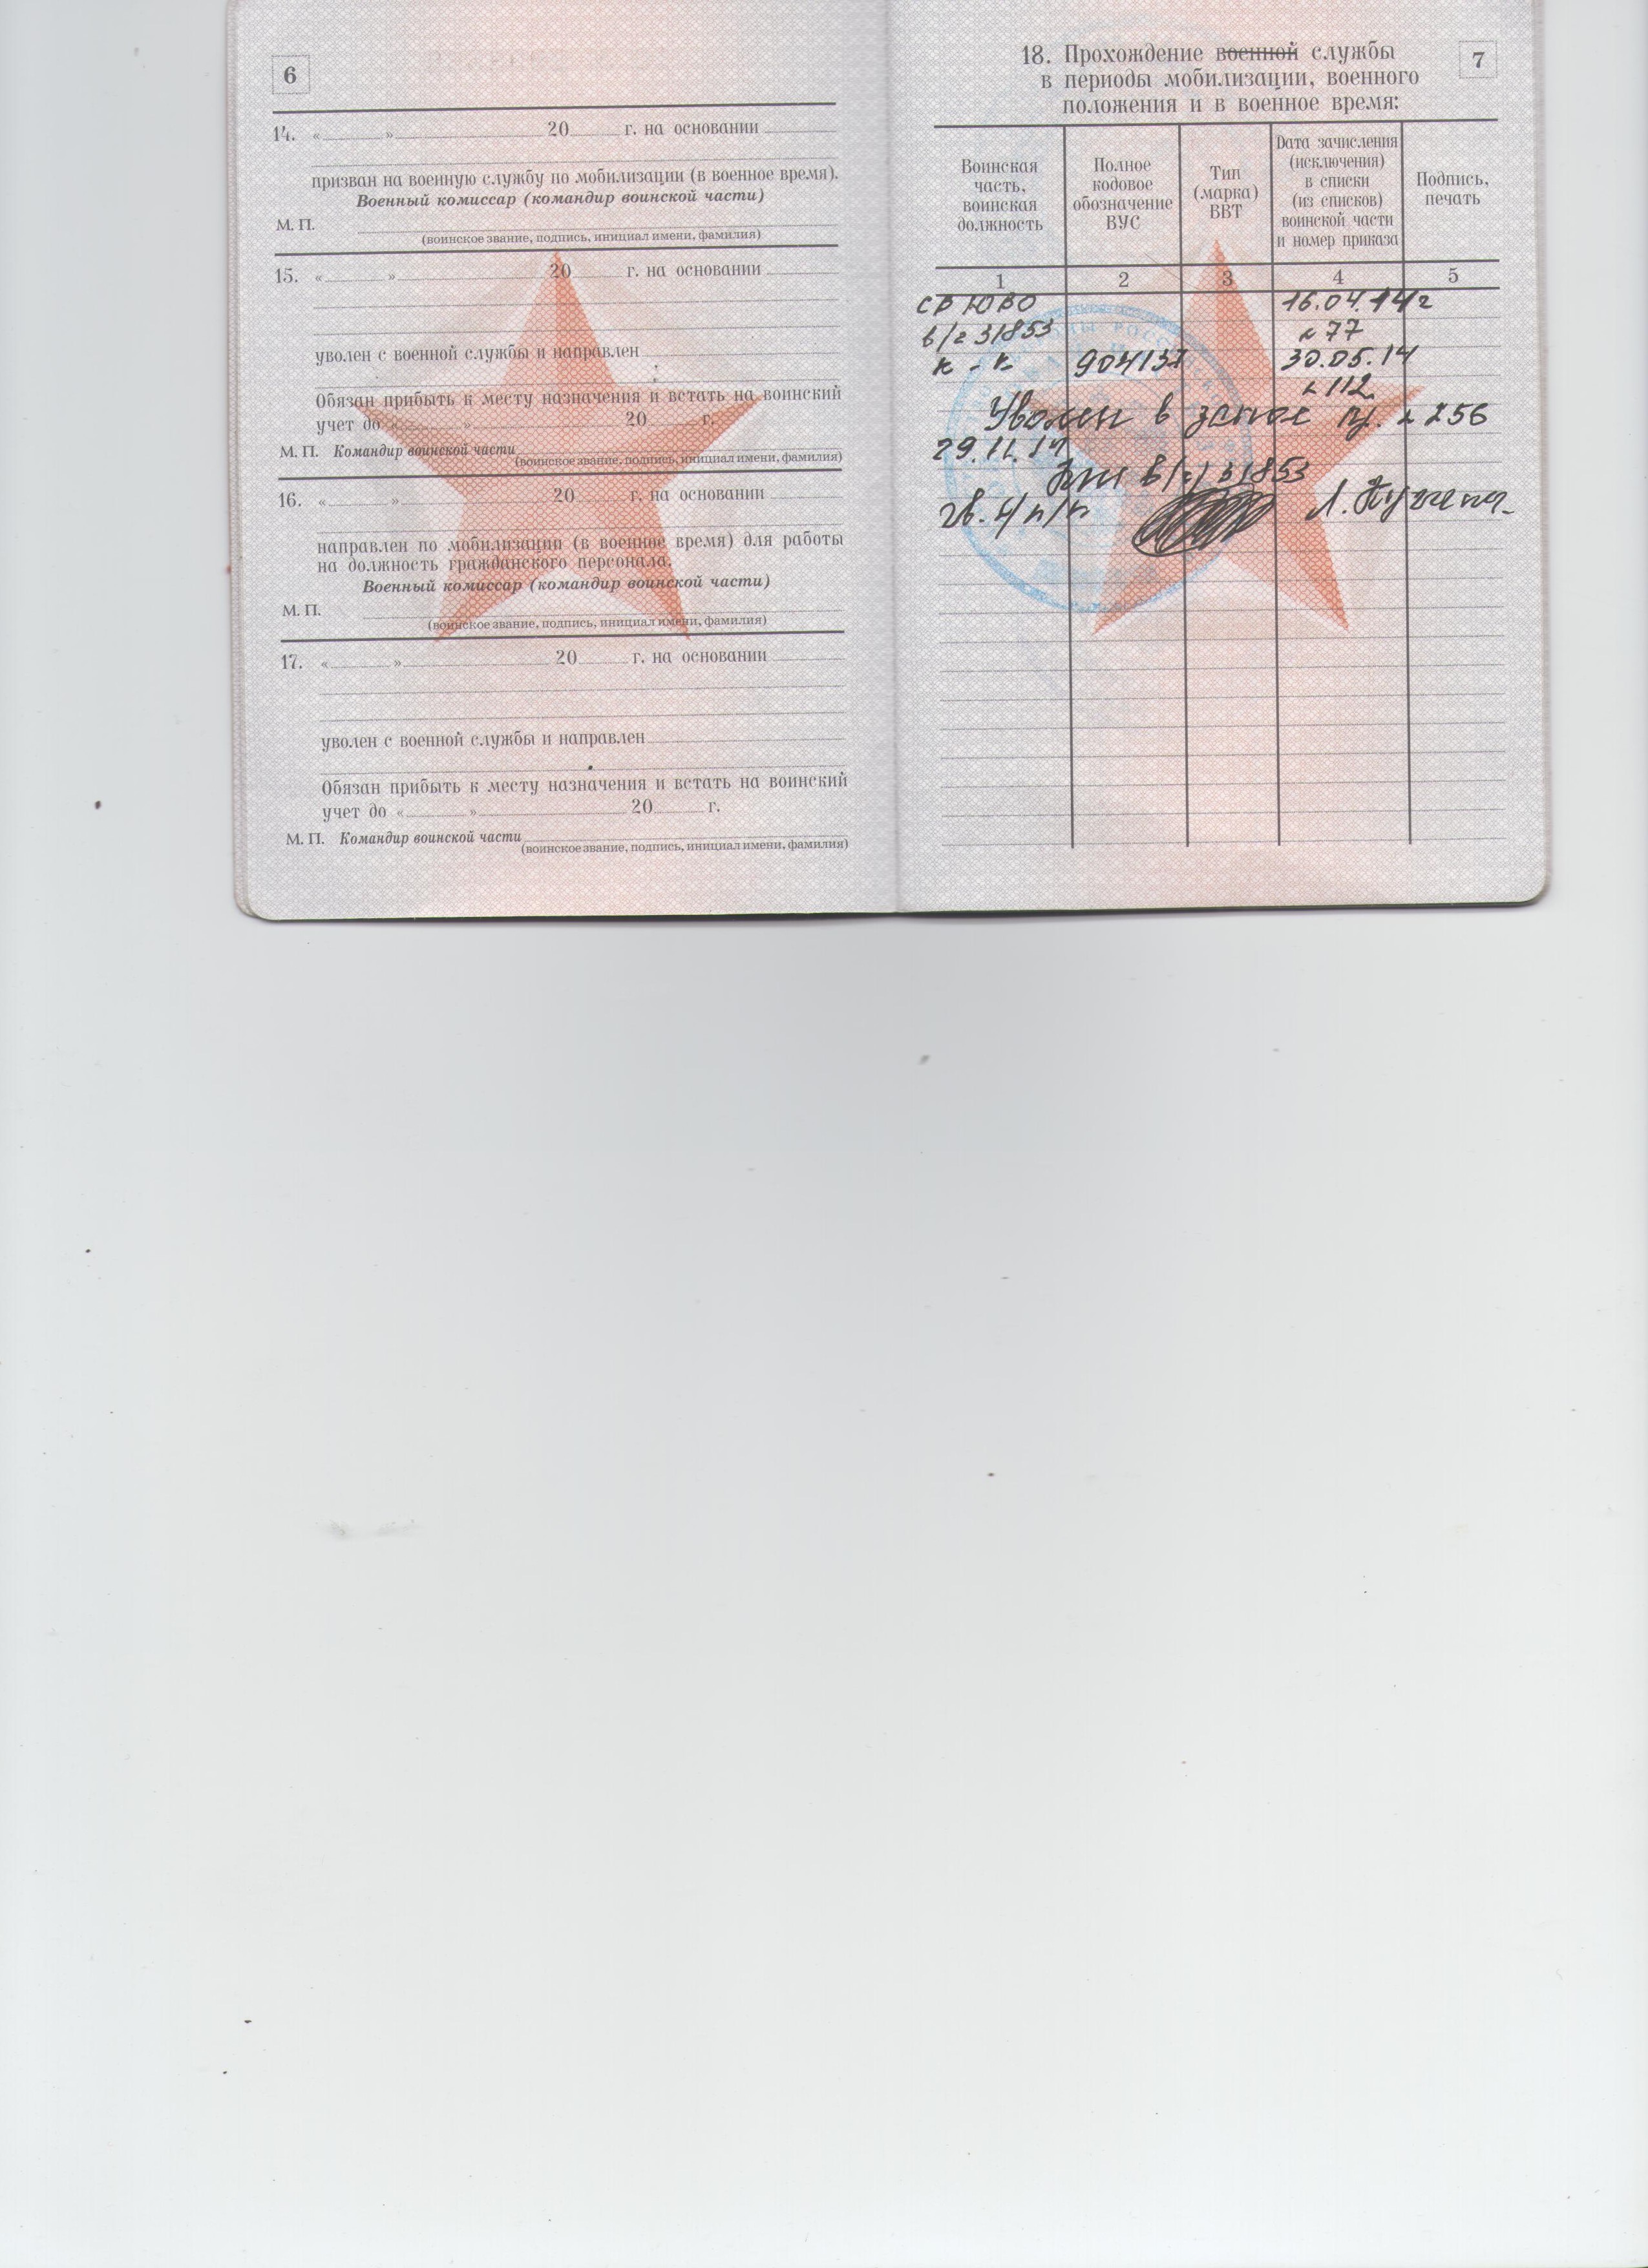 6
14. « » 20 г. на основании
призван на военную службу по мобилизации (в военное время).
Военный комиссар (командир воинской части)
М. П.
(воинское звание, подпись, инициал имени, фамилия)
15. « » 20 г. на основании
уволен с военной службы и направлен
Обязан прибыть к месту назначения и встать на воинский
учет до « » 20 г.
М. П. Командир воинской части
(воинское звание, подпись, инициал имени, фамилия)
16. « » 20 г. на основании
направлен по мобилизации (в военное время) для работы
на должность гражданского персонала.
Военный комиссар (командир воинской части)
М. П.
(воинское звание, подпись, инициал имени, фамилия)
17. « » 20 г. на основании
уволен с военной службы и направлен
Обязан прибыть к месту назначения и встать на воинский
учет до « » 20 г.
М. П. Командир воинской части
(воинское звание, подпись, инициал имени, фамилия)
7
18. Прохождение военной службы
в периоды мобилизации, военного
положения и в военное время:
Воинская
часть,
воинская
должность
Полное
кодовое
обозначение
ВУС
Тип
(марка)
ВВТ
Дата зачисления
(исключения)
в списки
(из списков)
воинской части
и номер приказа
Подпись,
печать
1 2 3 4 5
ЮВО 16.04.14г
31853 77
904137 30.05.14
112
Уволен в запас пр. 256
29.11.14
31853
гв. п/п